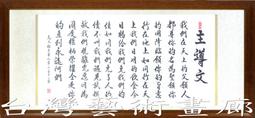 主禱文
我們在天上的父願人
都尊你的名為聖願你
的國降臨願你的旨意
行在地上如同行在天
上我們日用的飲食今
日賜給我們免我們的
債如同我們免了人的
債不叫我們遇見試探
救我們脫離兇惡因為
國度權柄榮耀全是你
的直到永遠阿們
台灣藝術畫廊